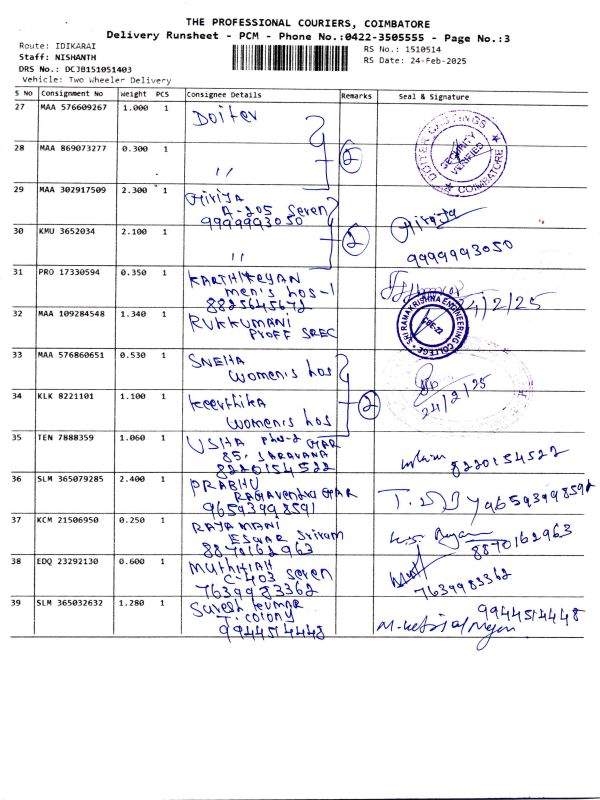 THE PROFESSIONAL COURIERS, COIMBATORE
Delivery Runsheet - PCM - Phone No.:0422-3505555 - Page No.:3
Route: IDIKARAI
RS No.: 1510514
Staff: NISHANTH
RS Date: 24-Feb-2025
DRS No.: DCJB151051403
Vehicle: Two Wheeler Delivery
S No Consignment No Weight PCS Consignee Details Remarks Seal & Signature
27 MAA 576609267 1.000 1 Doiter
DOITER CASTINGS
SECURITY VERIFIED
COIMBATORE
28 MAA 869073277 0.300 1 〃 2
29 MAA 302917509 2.300 1 Girija
A-205 Seven
9999993050
30 KMU 3652034 2.100 1 〃 2
Girija
9999993050
31 PRO 17330594 0.350 1 KARTHIKEYAN
men's hos-1
8825645672
24/2/25
32 MAA 109284548 1.340 1 RUKKUMANI
Proff SREC
SRI RAMAKRISHNA ENGINEERING COLLEGE
CBE-22
33 MAA 576860651 0.530 1 SNEHA
women's hos
24/2/25
34 KLK 8221101 1.100 1 Keerthika
women's hos
2
35 TEN 7888359 1.060 1 USHA
85, SARAVANA
8220154522
8220154522
36 SLM 365079285 2.400 1 PRABHU
RAGHAVENDRA
96593998591
37 KCM 21506950 0.250 1 RAJAMANI
ESWAR Sriram
8870162963
8870162963
38 EDQ 23292130 0.600 1 MUTHIAH
C-403 Seven
7639983362
7639983362
39 SLM 365032632 1.280 1 Suresh kumar
T. colony
9944514448
9944514448